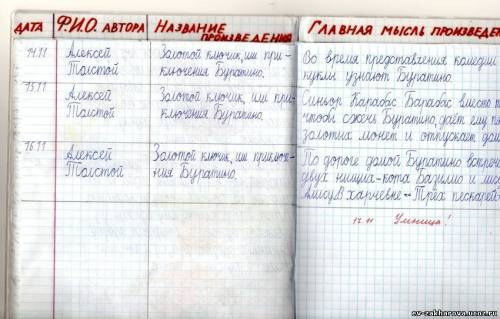 ДАТА Ф.И.О. АВТОРА НАЗВАНИЕ ПРОИЗВЕДЕНИЯ ГЛАВНАЯ МЫСЛЬ ПРОИЗВЕДЕН
14.11 Алексей Толстой
Золотой ключик, или при-
ключения Буратино.
Во время представления комедии
куклы узнают Буратино.
15.11 Алексей Толстой
Золотой ключик, или при-
ключения Буратино.
Синьор Карабас Барабас вместо т
чтобы сжечь Буратино, даёт ему
золотых монет и отпускает
16.11 Алексей Толстой
Золотой ключик, или приключе-
ния Буратино.
По дороге домой Буратино встрече
двух нищих - кота Базилио и лису
Алису. В харчевне "Трёх пескарей"
17.11 Умница!
ew-zakharova.ucoz.ru